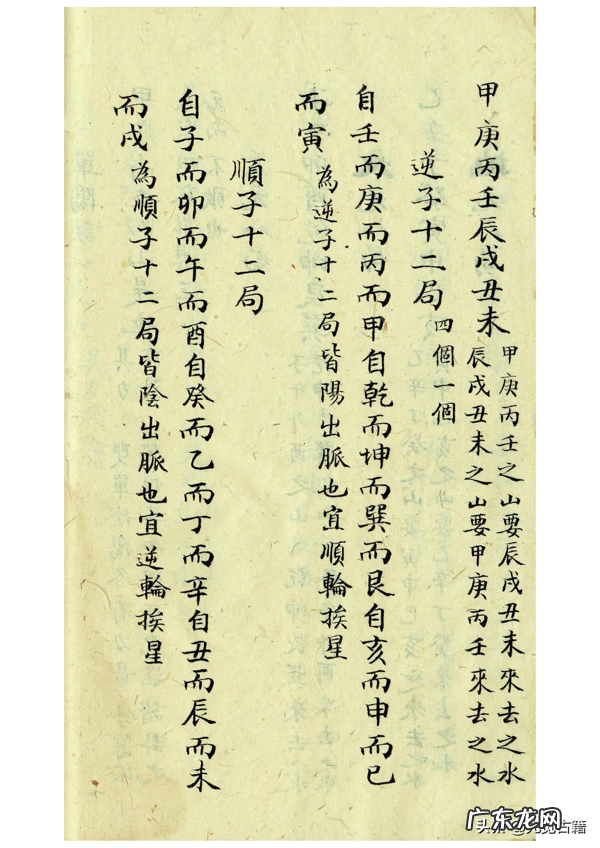 甲庚丙壬辰戌丑未
甲庚丙壬之山要辰戌丑未來去之水
辰戌丑未之山要甲庚丙壬來去之水
四個一個
逆子十二局
自壬而庚而丙而甲自乾而坤而巽而艮自亥而申而巳
而寅 為逆子十二局皆陽出脈也宜順輪挨星
順子十二局
自子而卯而午而酉自癸而乙而丁而辛自丑而辰而未
而戌 為順子十二局皆陰出脈也宜逆輪挨星
广东龙网